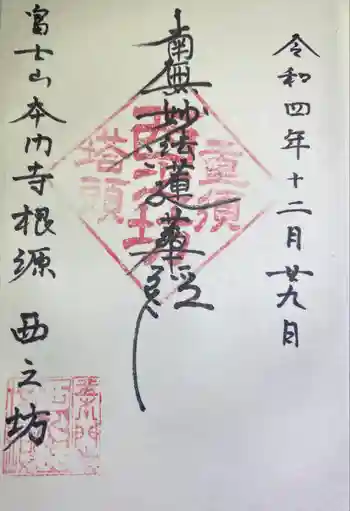 令和四年十二月廿九日
南無妙法蓮華経
富士山本門寺根源 西之坊
重須
西之坊
塔頭